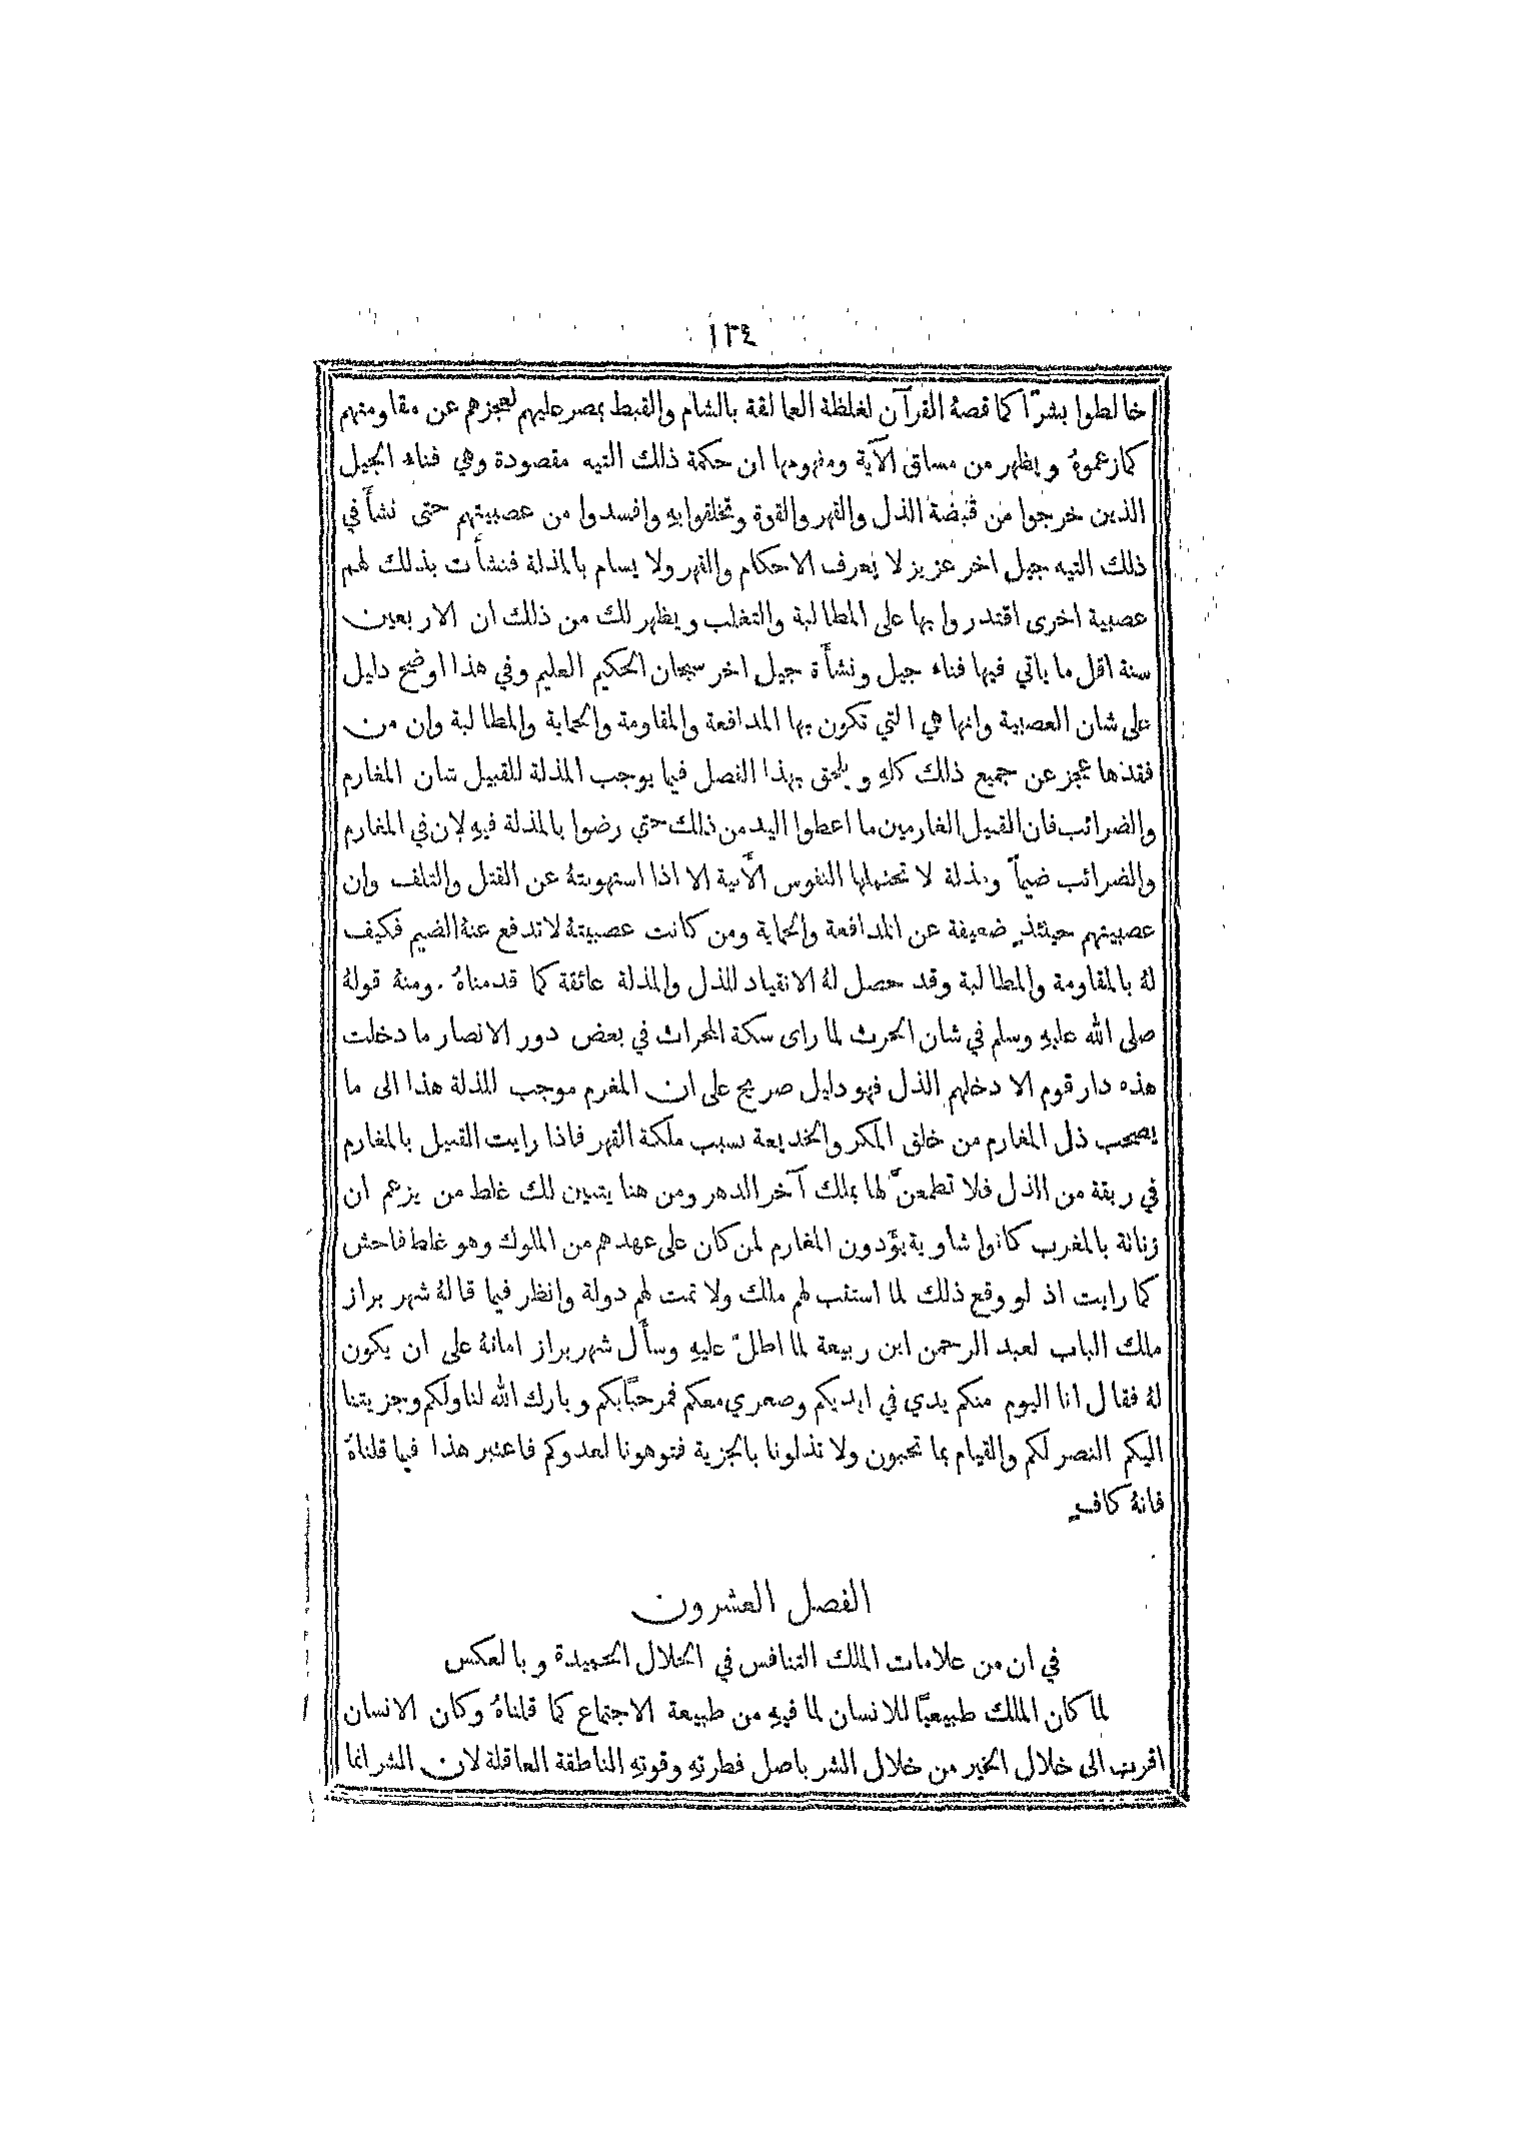 ١٢٤
خالطوا بشرًا كما قصهُ القرآن لغلظة العمالقة بالشام والقبط بمصر عليهم لعجزهم عن مقاومتهم
كما زعموهُ ويظهر من مساق الآية ومفهومها ان حكمة ذلك التيه مقصودة وهي فناء الجيل
الذين خرجوا من قبضة الذل والقهر والقوة وتخلقوا بهِ وافسدوا من عصبيتهم حتى نشأ في
ذلك التيه جيل اخر عزيز لا يعرف الاحكام والقهر ولا يسام بالمذلة فنشأت بذلك لهم
عصبية اخرى اقتدروا بها على المطالبة والتغلب ويظهر لك من ذلك ان الاربعين
سنة اقل ما ياتي فيها فناء جيل ونشأة جيل اخر سبحان الحكيم العليم وفي هذا اوضح دليل
على شان العصبية وانها هي التي تكون بها المدافعة والمقاومة والحماية والمطالبة وان من
فقدها عجز عن جميع ذلك كلهِ ويلحق بهذا الفصل فيما يوجب المذلة للقبيل شان المغارم
والضرائب فان القبيل الغارمين ما اعطوا اليد من ذلك حتى رضوا بالمذلة فيهِ لان في المغارم
والضرائب ضيماً ومذلة لا تحتملها النفوس الأبية الا اذا استهونتهُ عن القتل والتلف وان
عصبيتهم حينئذٍ ضعيفة عن المدافعة والحماية ومن كانت عصبيتهُ لا تدفع عنهُ الضيم فكيف
لهُ بالمقاومة والمطالبة وقد حصل لهُ الانقياد للذل والمذلة عائقة كما قدمناهُ . ومنهُ قولهُ
صلى الله عليهِ وسلم في شان الحرث لما راى سكة المحراث في بعض دور الانصار ما دخلت
هذه دار قوم الا دخلهم الذل فهو دليل صريح على ان المغرم موجب للذلة هذا الى ما
يصحب ذل المغارم من خلق المكر والخديعة بسبب ملكة القهر فاذا رايت القبيل بالمغارم
في ربقة من الذل فلا تطمعنّ لها بملك آخر الدهر ومن هنا يتبين لك غلط من يزعم ان
زناتة بالمغرب كانوا شاوية يؤدون المغارم لمن كان على عهدهم من الملوك وهو غلط فاحش
كما رايت اذ لو وقع ذلك لما استتب لهم ملك ولا تمت لهم دولة وانظر فيما قالهُ شهر براز
ملك الباب لعبد الرحمن ابن ربيعة لما اطلّ عليهِ وسأل شهربراز امانهُ على ان يكون
لهُ فقال انا اليوم منكم يدي في ايديكم وصعري معكم فمرحبًا بكم وبارك الله لنا ولكم وجزيتنا
اليكم النصر لكم والقيام بما تحبون ولا تذلونا بالجزية فتوهونا لعدوكم فاعتبر هذا فيما قلناهُ
فانهُ كافٍ
الفصل العشرون
في ان من علامات الملك التنافس في الخلال الحميدة وبالعكس
لما كان الملك طبيعيًا للانسان لما فيهِ من طبيعة الاجتماع كما قلناهُ وكان الانسان
اقرب الى خلال الخير من خلال الشر باصل فطرتهِ وقوتهِ الناطقة العاقلة لان الشر انما